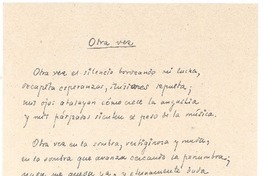 Otra vez
Otra vez el silencio borrando mi lucha,
decapita esperanzas, ilusiones sepulta;
mis ojos atalayan cómo crece la angustia
y mis párpados el peso de la música.
Otra vez en la sombra, vertiginosa y muda,
en la sombra que avanza cercando la penumbra;